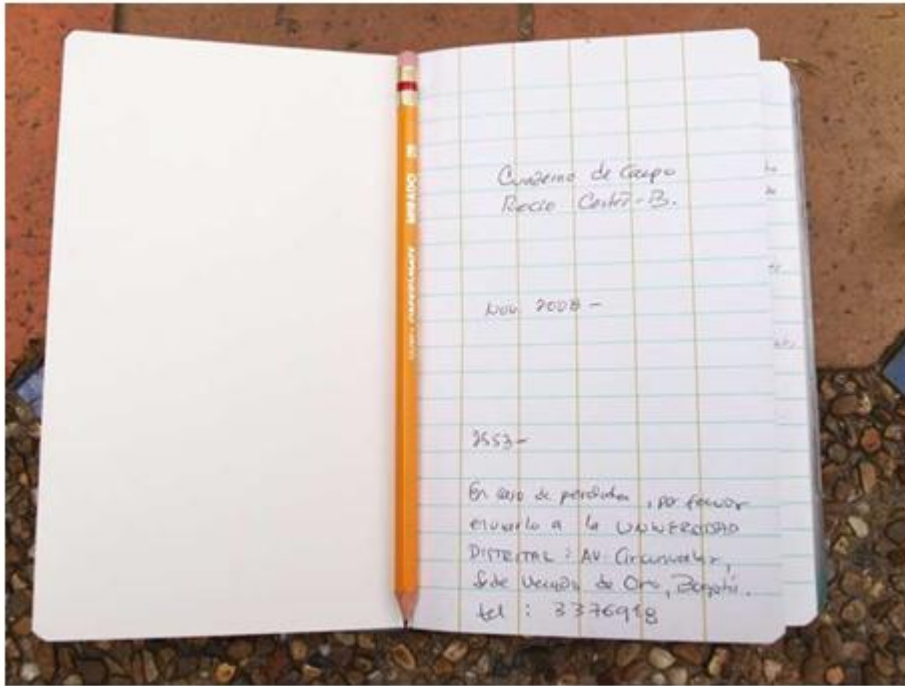 Cuaderno de Campo
Rocio Cortés-B.
Nov. 2008 -
2553-
En caso de perdida, por favor
enviarlo a la UNIVERSIDAD
DISTRITAL: AV. Circunvalar,
Sede Venado de Oro, Bogotá.
tel: 3376918